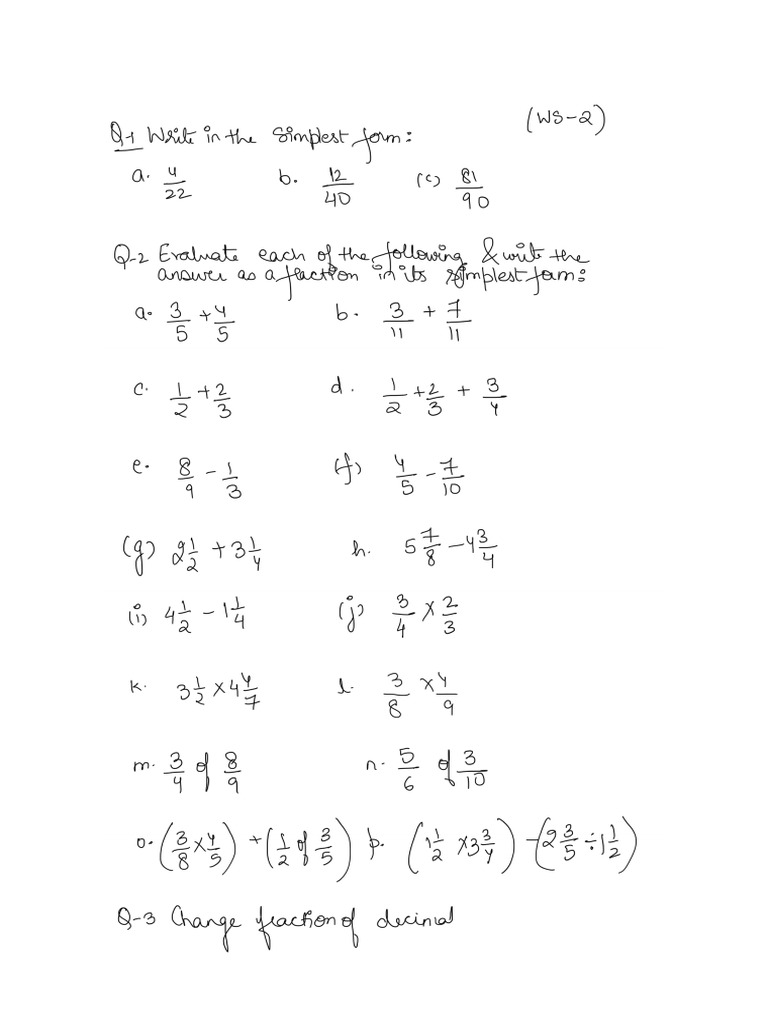 (WS-2)
Q1 Write in the simplest form:
a. 4/22 b. 12/40 (c) 81/90
Q-2 Evaluate each of the following & write the
answer as a fraction in its simplest form:
a. 3/5 + 4/5 b. 3/11 + 7/11
c. 1/2 + 2/3 d. 1/2 + 2/3 + 3/4
e. 8/9 - 1/3 (f) 4/5 - 7/10
(g) 2 1/2 + 3 1/4 h. 5 7/8 - 4 3/4
(i) 4 1/2 - 1 1/4 (j) 3/4 × 2/3
k. 3 1/2 × 4 4/7 l. 3/8 × 4/9
m. 3/4 of 8/9 n. 5/6 of 3/10
o. (3/8 × 4/5) + (1/2 of 3/5) p. (1 1/2 × 3 3/4) - (2 3/5 ÷ 1 1/2)
Q-3 Change fraction of decimal